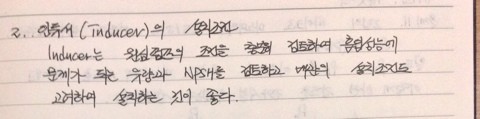 2. 인듀서 (Inducer)의 설치조건
Inducer는 원심펌프의 조건을 충분히 검토하여 흡입성능에
문제가 되는 유량과 NPSH를 검토하고 배관의 설치조건도
고려하여 설치하는 것이 좋다.